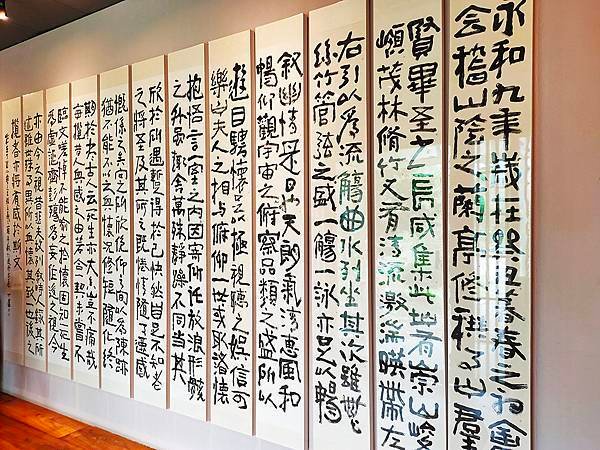 永和九年歲在癸丑暮春之初會
会稽山陰之蘭亭修稧事也羣
賢畢至少長咸集此地有崇山峻
嶺茂林脩竹又有清流激湍暎帶左
右引以為流觴曲水列坐其次雖無
絲竹管弦之盛一觴一詠亦足以暢
叙幽情是日也天朗氣清惠風和
暢仰觀宇宙之俯察品類之盛所以
遊目騁懷足以極視聽之娛信可
樂也夫人之相與俯仰一世或取諸懷
抱悟言一室之内因寄所託放浪形骸
之外雖趣舍萬殊靜躁不同當其
欣於所遇暫得於己快然自足不知老
之將至及其所之既倦情隨事遷感
慨係之矣向之所欣俛仰之間以為陳跡
猶不能不以之興懷況修短隨化終
期於盡古人云死生亦大矣豈不痛哉
每攬昔人興感之由若合一契未嘗不
臨文嗟悼不能喻之於懷固知一死生
為虛誕齊彭殤為妄作後之視今
亦由今之視昔悲夫故列叙時人錄其所
述雖世殊事異所以興懷其致一也後之
攬者亦將有感於斯文